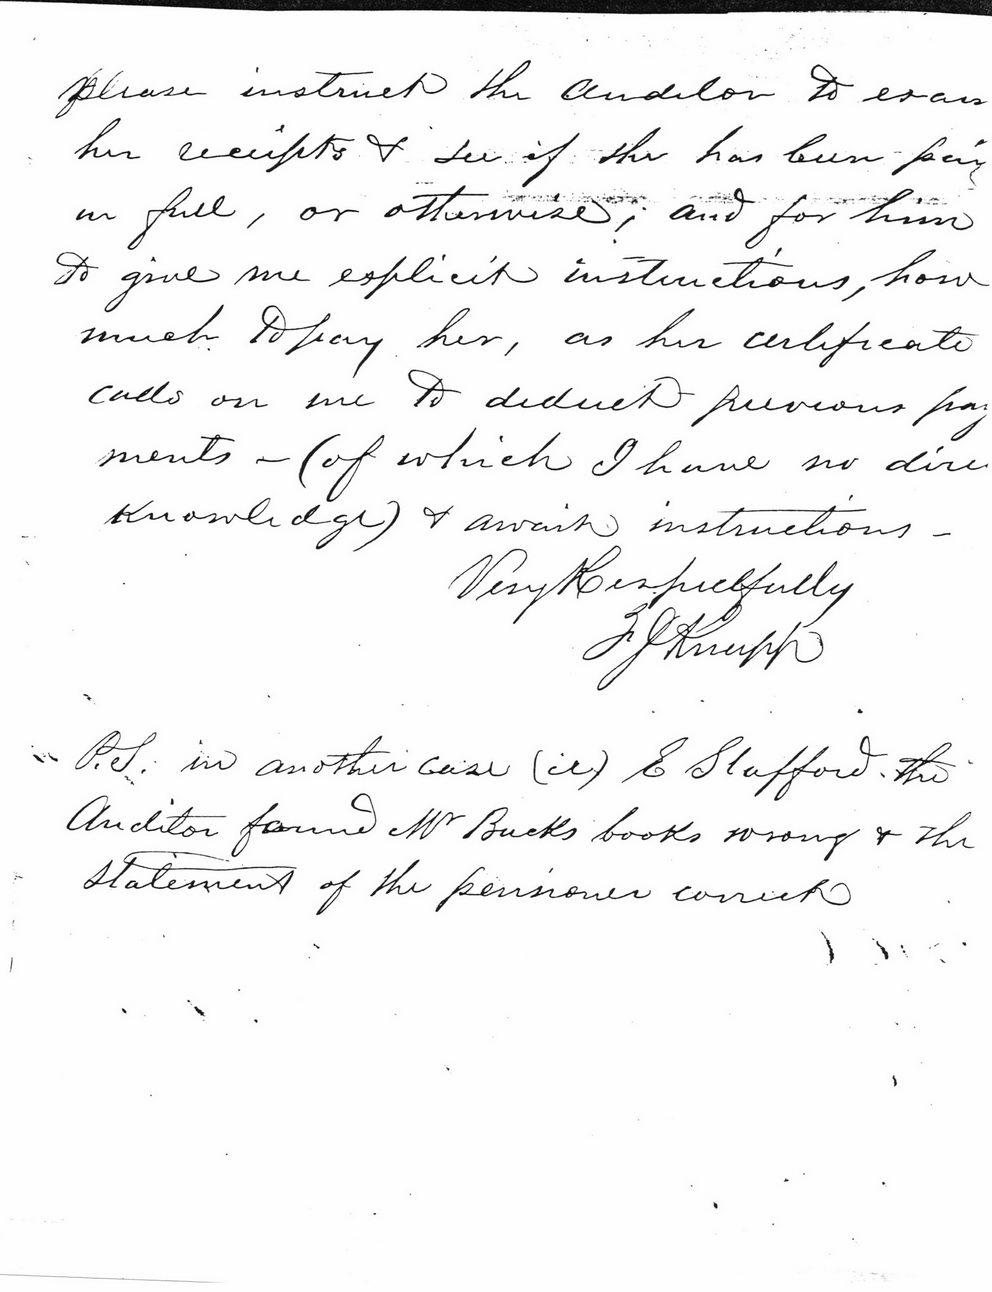 please instruct the Auditor to exam
her receipts & see if she has been pay
in full, or otherwise; and for him
to give me explicit instructions, how
much to pay her, as her certificate
calls on me to deduct previous pay
ments - (of which I have no dire
knowledge) & await instructions -
Very Respectfully
Z J Knupp
P.S. in another case (ie) E Stafford. the
Auditor found Mr Bucks books wrong & the
statement of the pensioner correct